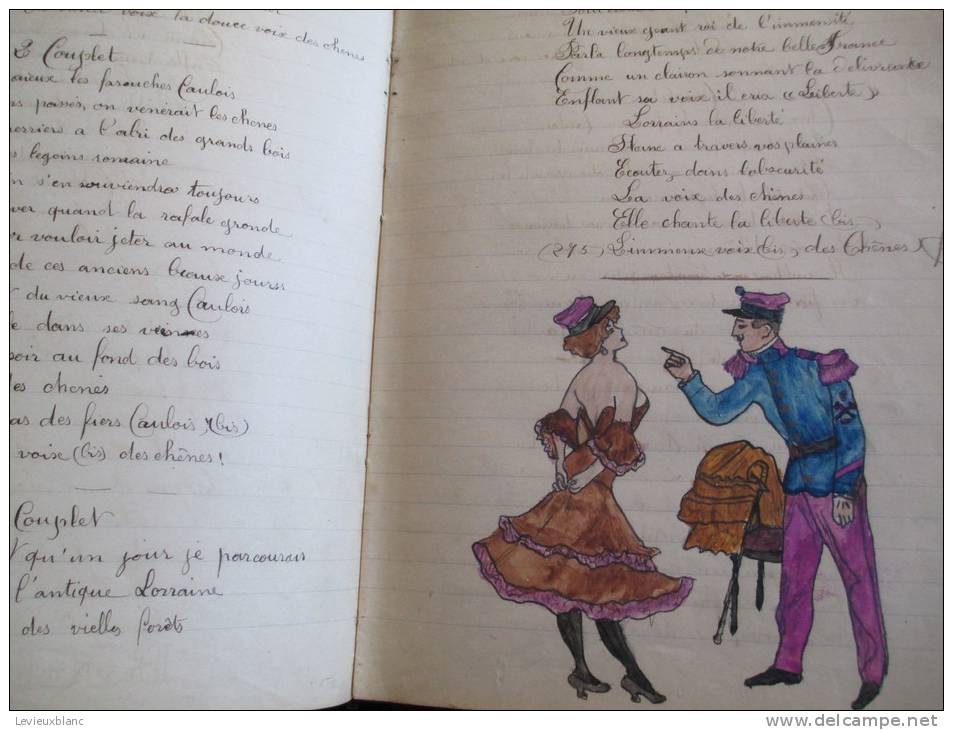 la douce voix des chênes
2 Couplet
aieux les farouches Gaulois
passés, on venérait les chênes
a l'abri des grands bois
legoins romaine
s'en souviendra toujours
quand la rafale gronde
vouloir jeter au monde
de ces anciens beaux jours
du vieux sang Gaulois
dans ses veines
au fond des bois
des chenes
as des fiers Gaulois (bis)
voixe (bis) des chênes!
Couplet
qu'un jour je parcourais
l'antique Lorraine
des vielles forêts
Un vieux geant roi de l'immensité
Parla longtemps de notre belle France
Comme un clairon sonnant la délivrance
Enflant sa voix il cria «Liberté»
Lorrains la liberté
Plane a travers vos plaines
Ecoutez, dans l'obscurité
La voix des chênes
Elle chante la liberté (bis)
(295) L'immense voix (bis) des Chênes
Levieuxblanc
www.delcampe.net